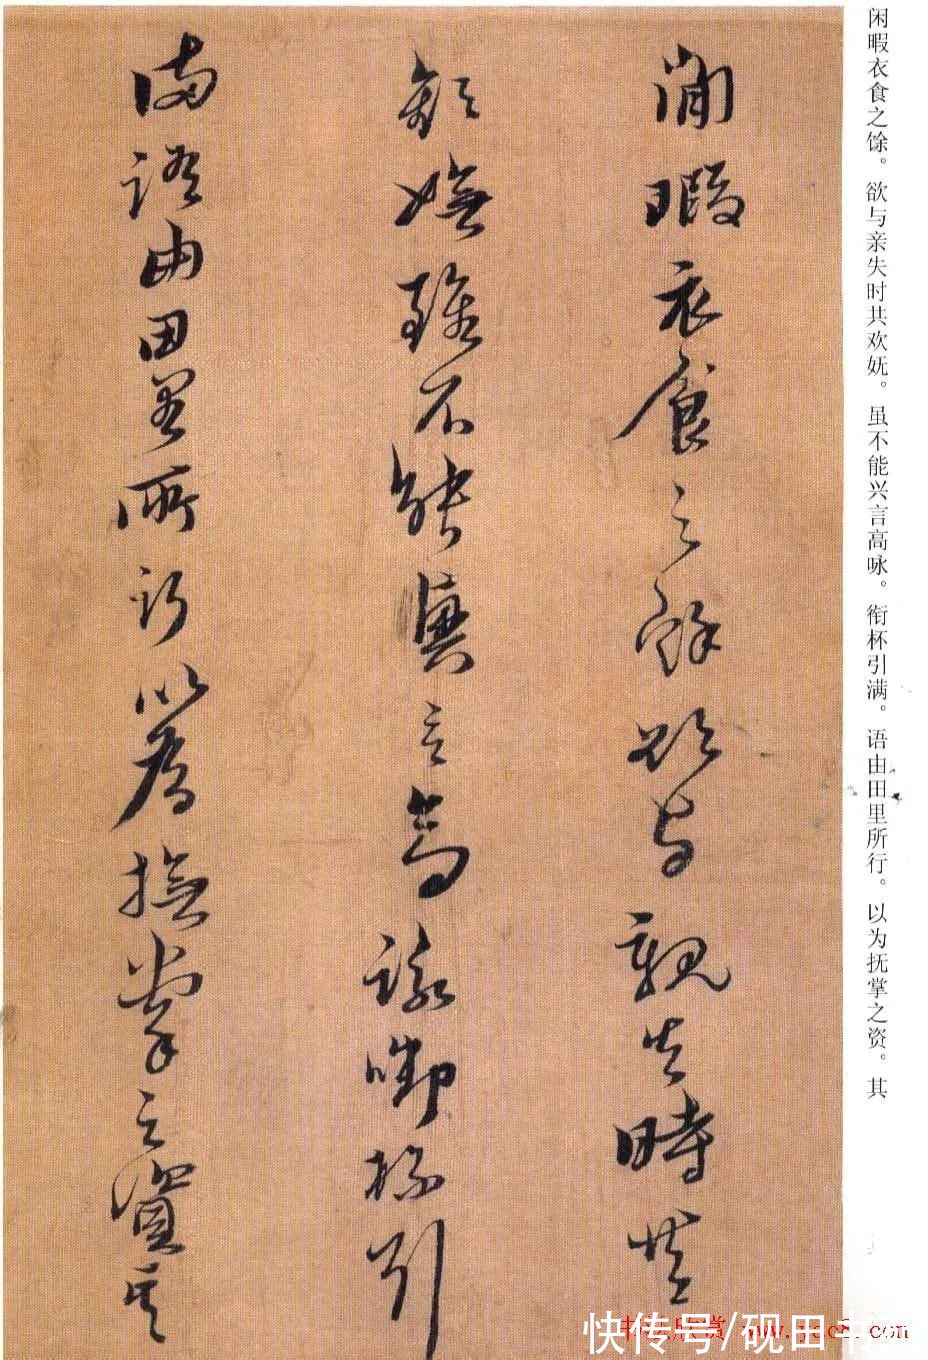 闲暇衣食之馀。欲与亲失时共欢妩。虽不能兴言高咏。衔杯引满。语由田里所行。以为抚掌之资。其
閒暇衣食之餘欲与親失時共
歡嫵雖不能興言高詠啣杯引
滿語由田里所行以為撫掌之資其
快传号/砚田